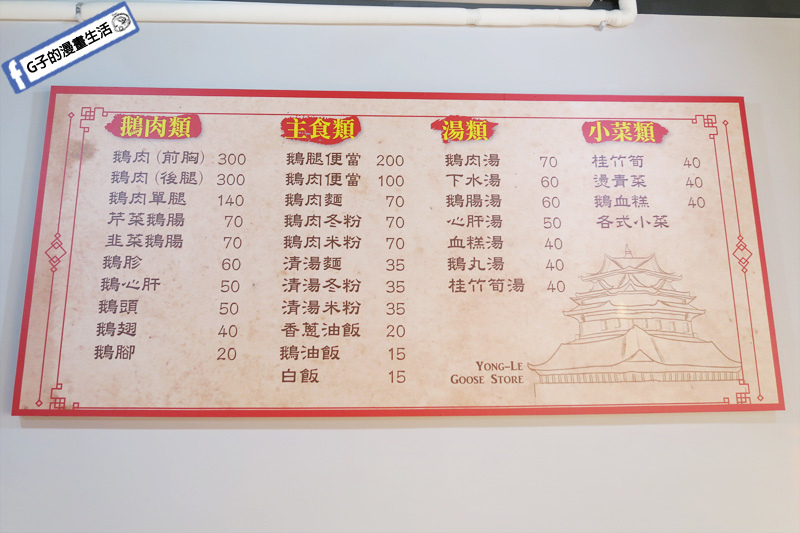 G子的漫畫生活
鵝肉類
鵝肉(前胸) 300
鵝肉(後腿) 300
鵝肉單腿 140
芹菜鵝腸 70
韭菜鵝腸 70
鵝胗 60
鵝心肝 50
鵝頭 50
鵝翅 40
鵝腳 20
主食類
鵝腿便當 200
鵝肉便當 100
鵝肉麵 70
鵝肉冬粉 70
鵝肉米粉 70
清湯麵 35
清湯冬粉 35
清湯米粉 35
香蔥油飯 20
鵝油飯 15
白飯 15
湯類
鵝肉湯 70
下水湯 60
鵝腸湯 60
心肝湯 50
血糕湯 40
鵝丸湯 40
桂竹筍湯 40
小菜類
桂竹筍 40
燙青菜 40
鵝血糕 40
各式小菜
YONG-LE
GOOSE STORE